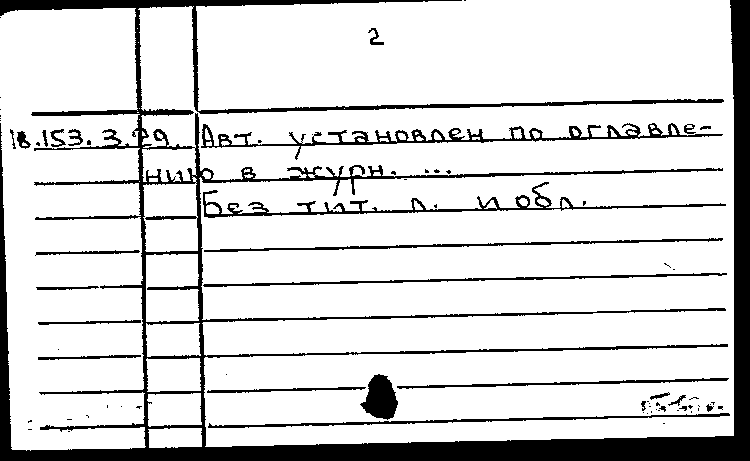 2
18.153.3.29. Авт. установлен по оглавле-
нию в журн. ...
Без тит. л. и обл.